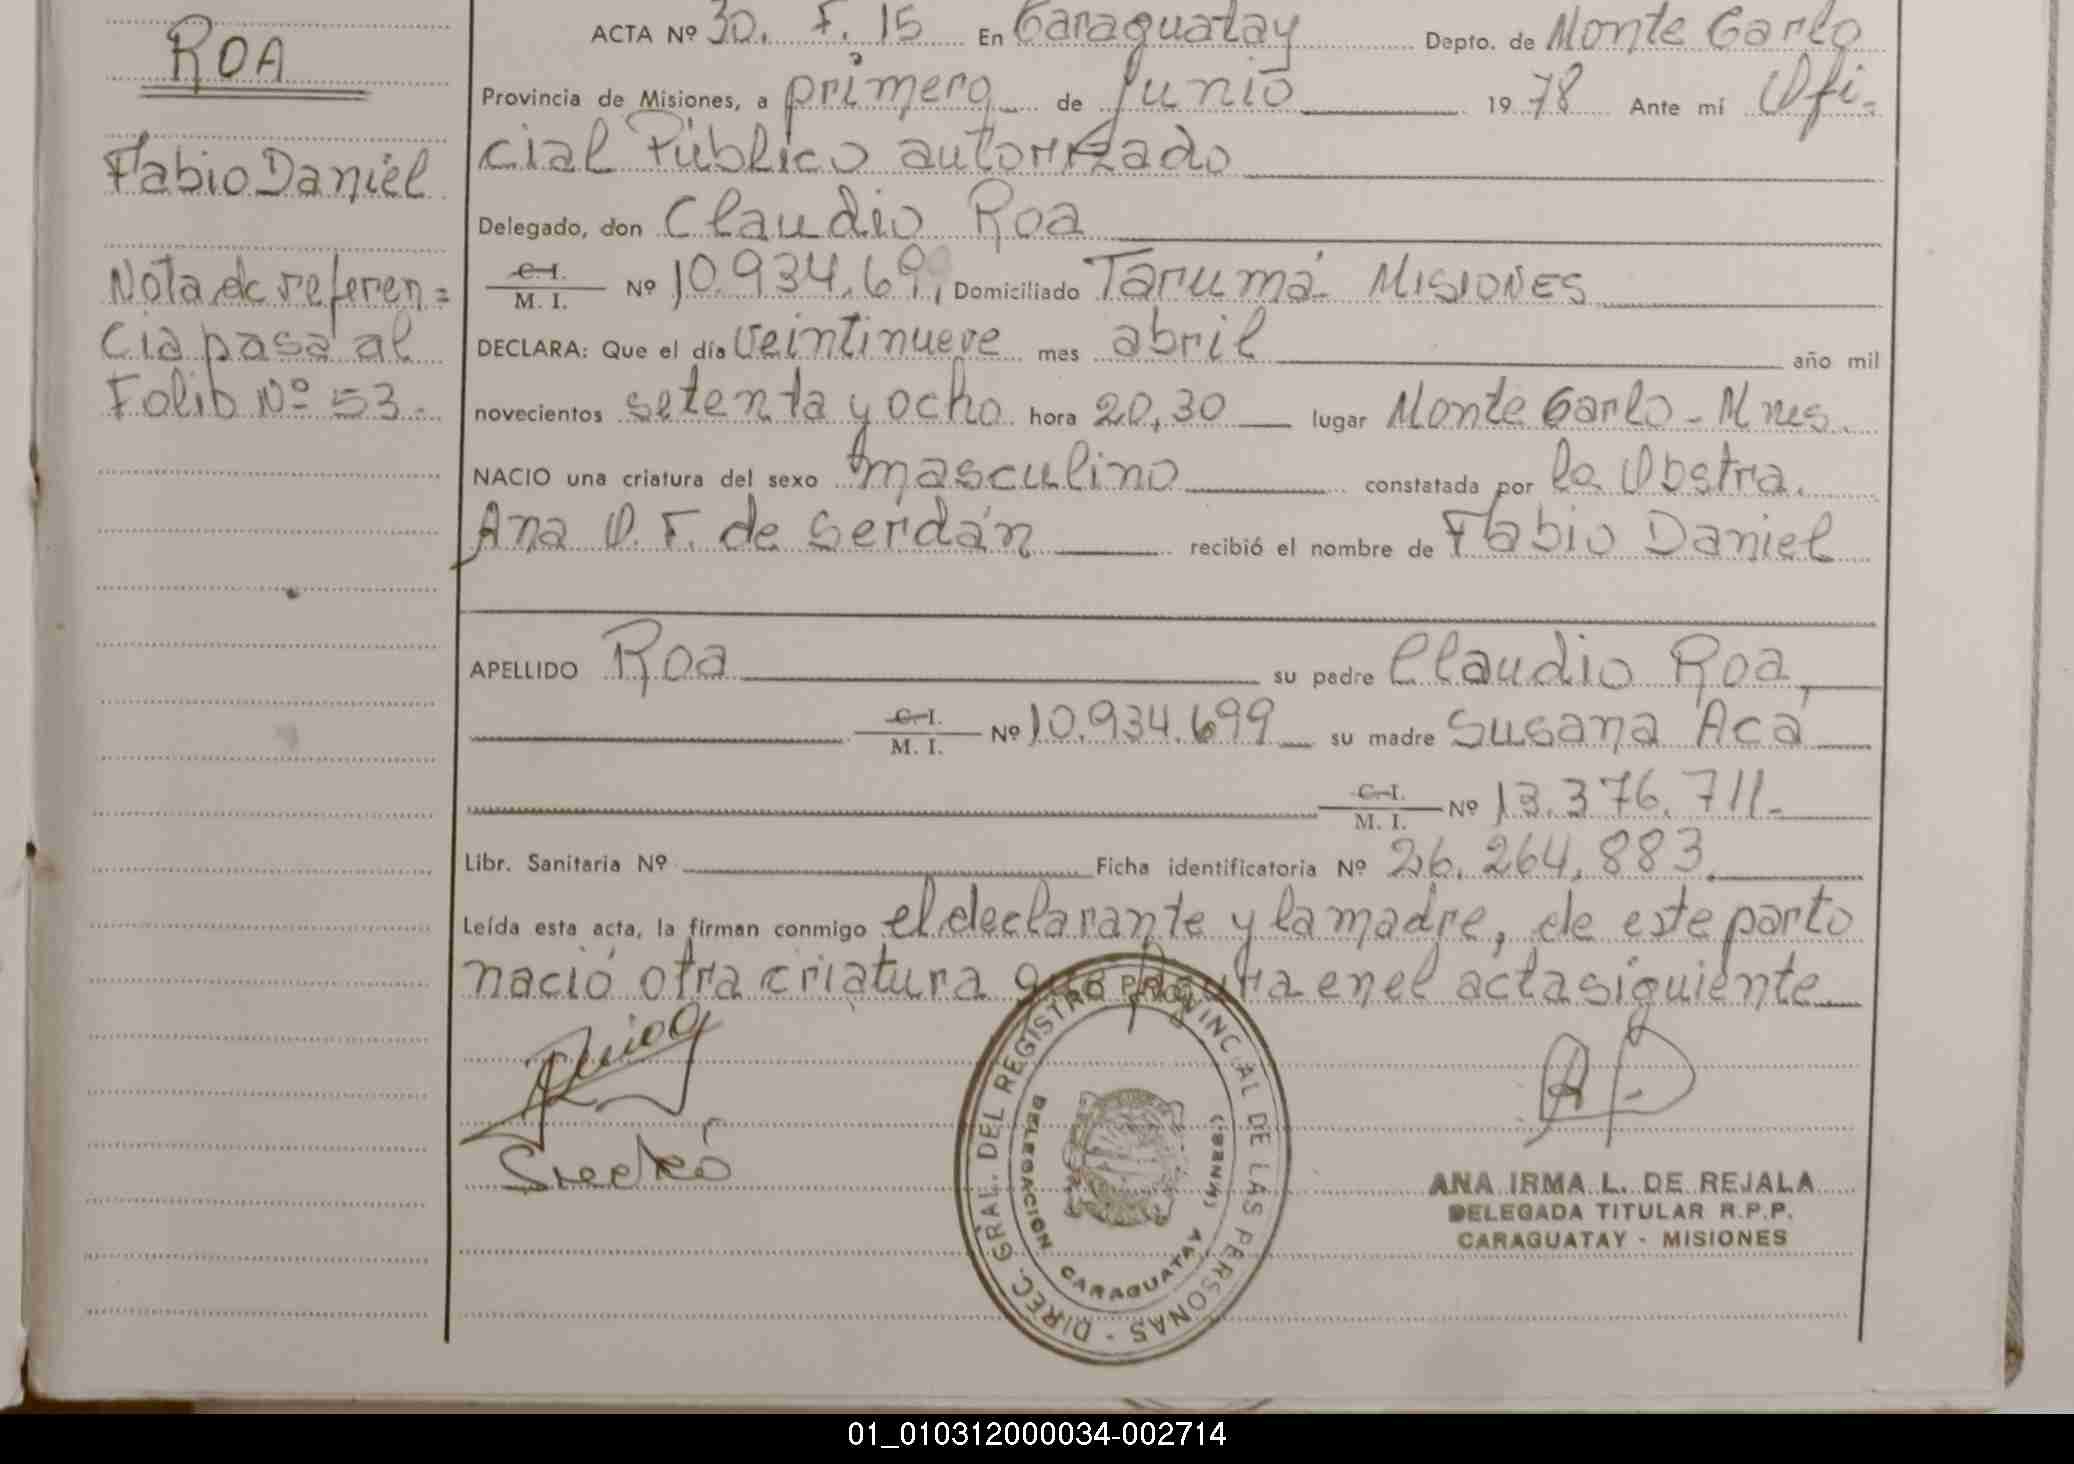 ROA
Fabio Daniel
Nota de referen=
cia pasa al
Folio Nº 53.-
ACTA Nº 30. F. 15 En Caraguatay Depto. de Monte Carlo
Provincia de Misiones, a primero de Junio 19 78 Ante mí Ofi-
cial Público autorizado
Delegado, don Claudio Roa
C.I. M. I. Nº 10.934.699, Domiciliado Tarumá - MISIONES
DECLARA: Que el día veintinueve mes abril año mil
novecientos setenta y ocho hora 20,30 lugar Monte Carlo - Mnes.
NACIO una criatura del sexo masculino constatada por la Obstra.
Ana O. F. de Serdán recibió el nombre de Fabio Daniel
APELLIDO Roa su padre Claudio Roa,
C.I. M. I. Nº 10.934.699 su madre Susana Acá
C.I. M. I. Nº 13.376.711.-
Libr. Sanitaria Nº Ficha identificatoria Nº 26.264.883.
Leída esta acta, la firman conmigo el declarante y la madre, de este parto
nació otra criatura que figura en el acta siguiente
DIREC. GRAL. DEL REGISTRO PROVINCIAL DE LAS PERSONAS -
DELEGACION CARAGUATAY (MNES.)
ANA IRMA L. DE REJALA
DELEGADA TITULAR R.P.P.
CARAGUATAY - MISIONES
01_010312000034-002714